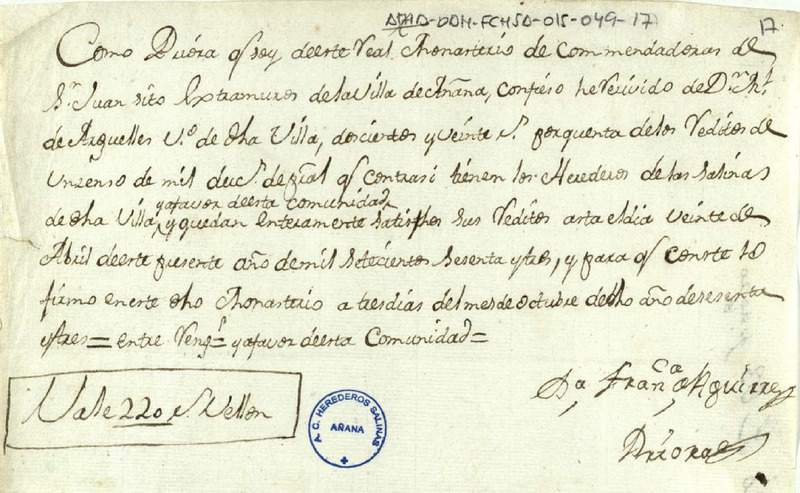 AMD-DDH-FCHSD-015-049-17
17
Como Priora q̅ soy deeste Real Monasterio de Commendadoras de
Sn. Juan sito extramuros de la Villa de Añana, confieso he Recivido de Dn. Ml.
de Arguelles Vo. de dha Villa, doscientos y veinte rs. por quenta de los Reditos de
un zenso de mil ducs. de pral q̅ contra si tienen los Herederos de las Salinas
y a favor de esta comunidad
de dha Villa, y quedan enteramente satisfhos sus Reditos asta el dia veinte de
Abril deeste presente año de mil setecientos sesenta y tres, y para q̅ conste lo
firmo en este dho Monasterio a tres dias del mes de octubre de dho año de sesenta
y tres = entre Rengs. = y a favor de esta Comunidad =
Vale 220 rs. Vellon
A. C. HEREDEROS SALINAS
AÑANA
Da. Franca. Aguirre y
Priora